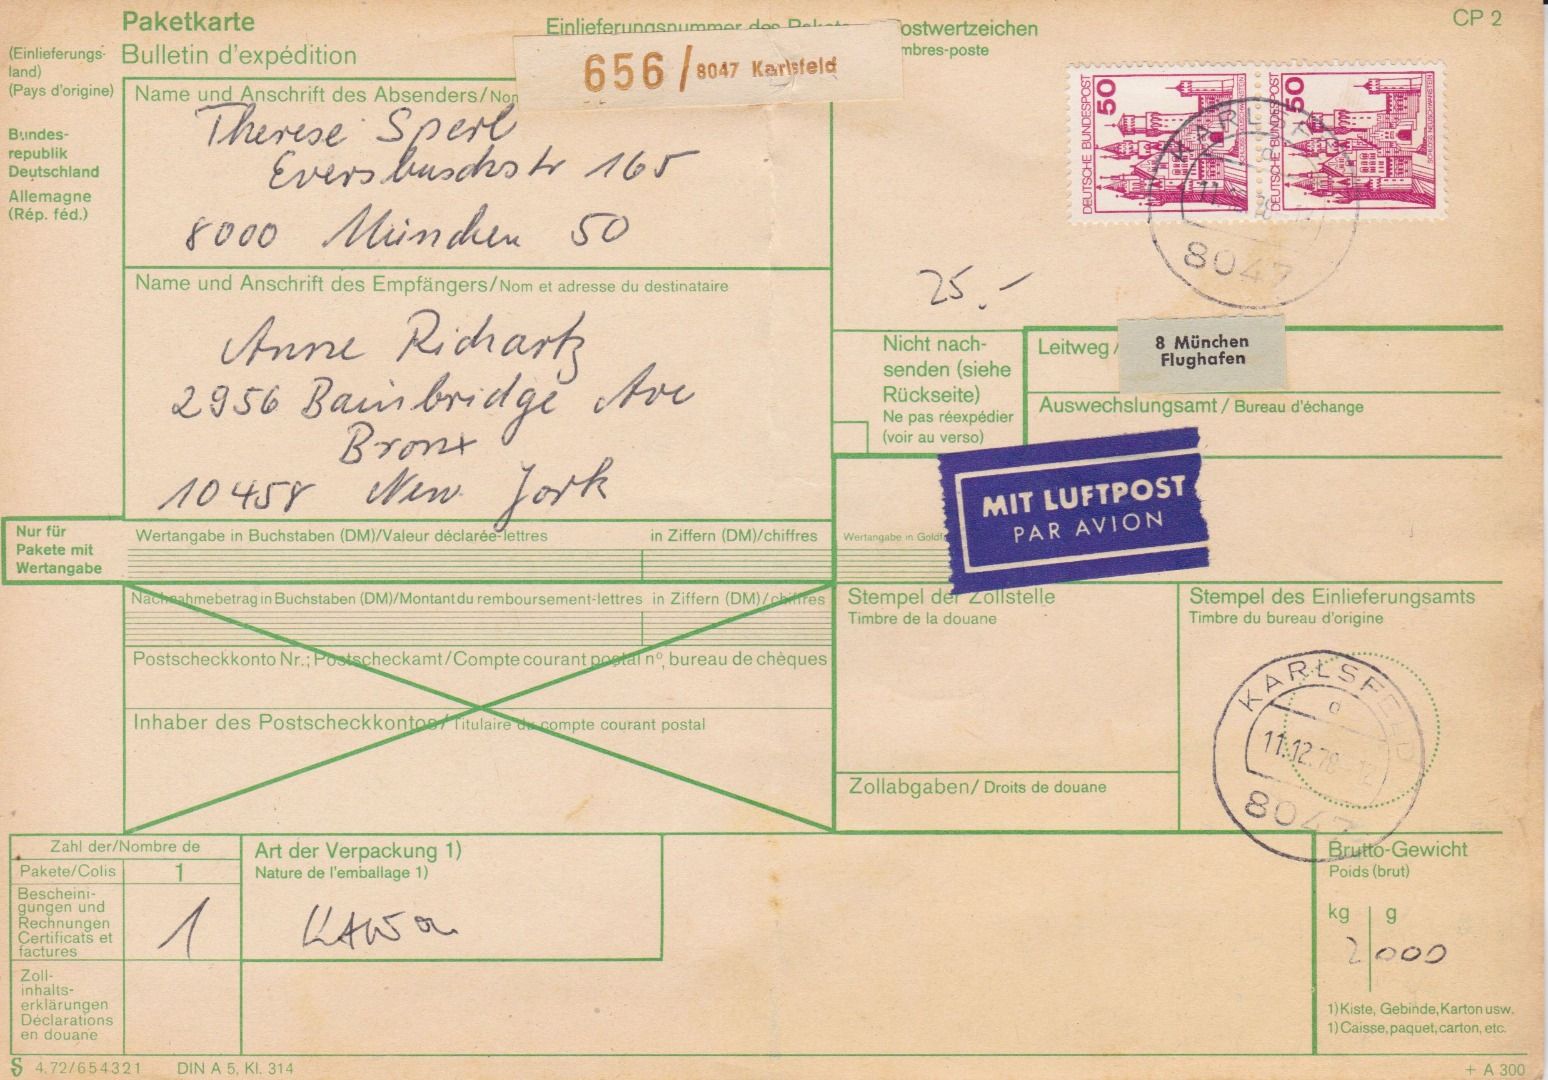 Paketkarte
Bulletin d'expédition
(Einlieferungs-
land)
(Pays d'origine)
Bundes-
republik
Deutschland
Allemagne
(Rép. féd.)
Einlieferungsnummer des
656 / 8047 Karlsfeld
ostwertzeichen
mbres-poste
CP 2
Name und Anschrift des Absenders/Nom
Therese Sperl
Eversbuschstr 165
8000 München 50
DEUTSCHE BUNDESPOST 50
DEUTSCHE BUNDESPOST 50
KARLSF
8047
25.-
Name und Anschrift des Empfängers/Nom et adresse du destinataire
Anne Richartz
2956 Bainbridge Ave
Bronx
10458 New York
Nicht nach-
senden (siehe
Rückseite)
Ne pas réexpédier
(voir au verso)
Leitweg/
8 München
Flughafen
Auswechslungsamt / Bureau d'échange
MIT LUFTPOST
PAR AVION
Nur für
Pakete mit
Wertangabe
Wertangabe in Buchstaben (DM)/Valeur déclarée-lettres
in Ziffern (DM)/chiffres
Wertangabe in Goldf
Nachnahmebetrag in Buchstaben (DM)/Montant du remboursement-lettres in Ziffern (DM)/chiffres
Postscheckkonto Nr.; Postscheckamt/Compte courant postal n°, bureau de chèques
Inhaber des Postscheckkontos/Titulaire du compte courant postal
Stempel der Zollstelle
Timbre de la douane
Zollabgaben/ Droits de douane
Stempel des Einlieferungsamts
Timbre du bureau d'origine
KARLSFELD
a
11.12.78-12
8047
Zahl der/Nombre de
Pakete/Colis 1
Bescheini-
gungen und
Rechnungen
Certificats et
factures
1
Zoll-
inhalts-
erklärungen
Déclarations
en douane
Art der Verpackung 1)
Nature de l'emballage 1)
Brutto-Gewicht
Poids (brut)
kg g
2 000
1) Kiste, Gebinde, Karton usw.
1) Caisse, paquet, carton, etc.
S 4.72/654321 DIN A 5, Kl. 314
+ A 300